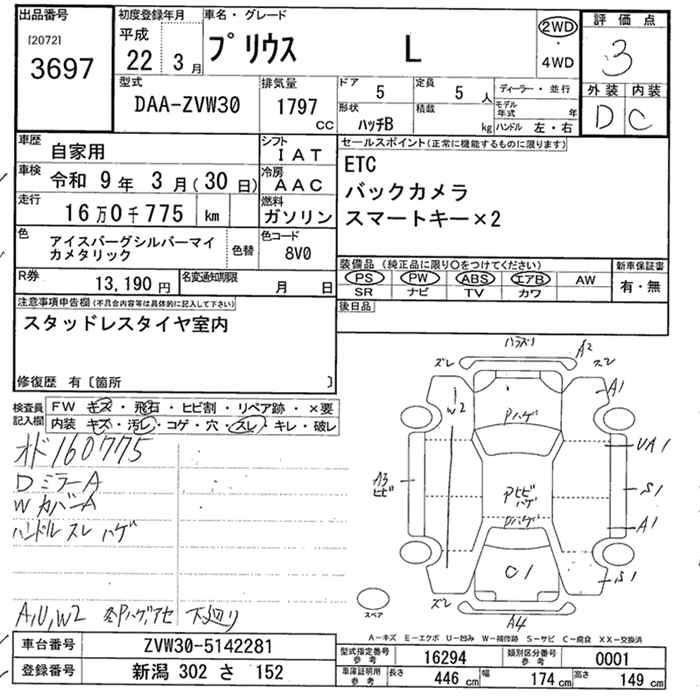 出品番号
[2072]
3697
初度登録年月
平成
22年 3月
車名・グレード
プリウス L
2WD
・
4WD
評価点
3
外装 内装
D C
型式
DAA-ZVW30
排気量
1797 CC
ドア 5
定員 5 人
形状 ハッチB
積載 kg
ディーラー・並行
モデル年式 年
ハンドル 左・右
車歴 自家用
シフト IAT
車検 令和 9年 3月(30日)
冷房 AAC
走行 16万0千775 km
燃料 ガソリン
色 アイスバーグシルバーマイカメタリック
色替
色コード 8V0
R券 13,190円
名変通知期限 月 日
セールスポイント(正常に機能するものに限ります)
ETC
バックカメラ
スマートキー×2
装備品(純正品に限り○をつけてください)
PS PW ABS エアB AW
SR ナビ TV カワ
新車保証書
有・無
後日品
注意事項申告欄(不具合内容等は具体的に記入して下さい)
スタッドレスタイヤ室内
修復歴 有〔箇所 〕
検査員記入欄
FW キズ・飛石・ヒビ割・リペア跡・×要
内装 キズ・汚レ・コゲ・穴・スレ・キレ・破レ
オド160775
DミラーA
WカバーA
ハンドルスレハゲ
A,U,W2 各Pハゲアセ 下廻り
ハズリ
ズレ A2 スレ
A1
W2
Pハゲ
UA1
A3
ヒビ
Pヒビ
ハゲ
S1
Pハゲ
A1
C1
S1
ズレ
A4
スペア
A−キズ E−エクボ U−凹み W−補修跡 S−サビ C−腐食 XX−交換済
車台番号 ZVW30-5142281
登録番号 新潟 302 さ 152
型式指定番号 参考 16294
類別区分番号 参考 0001
車庫証明用 参考 長さ 446 cm 幅 174 cm 高さ 149 cm